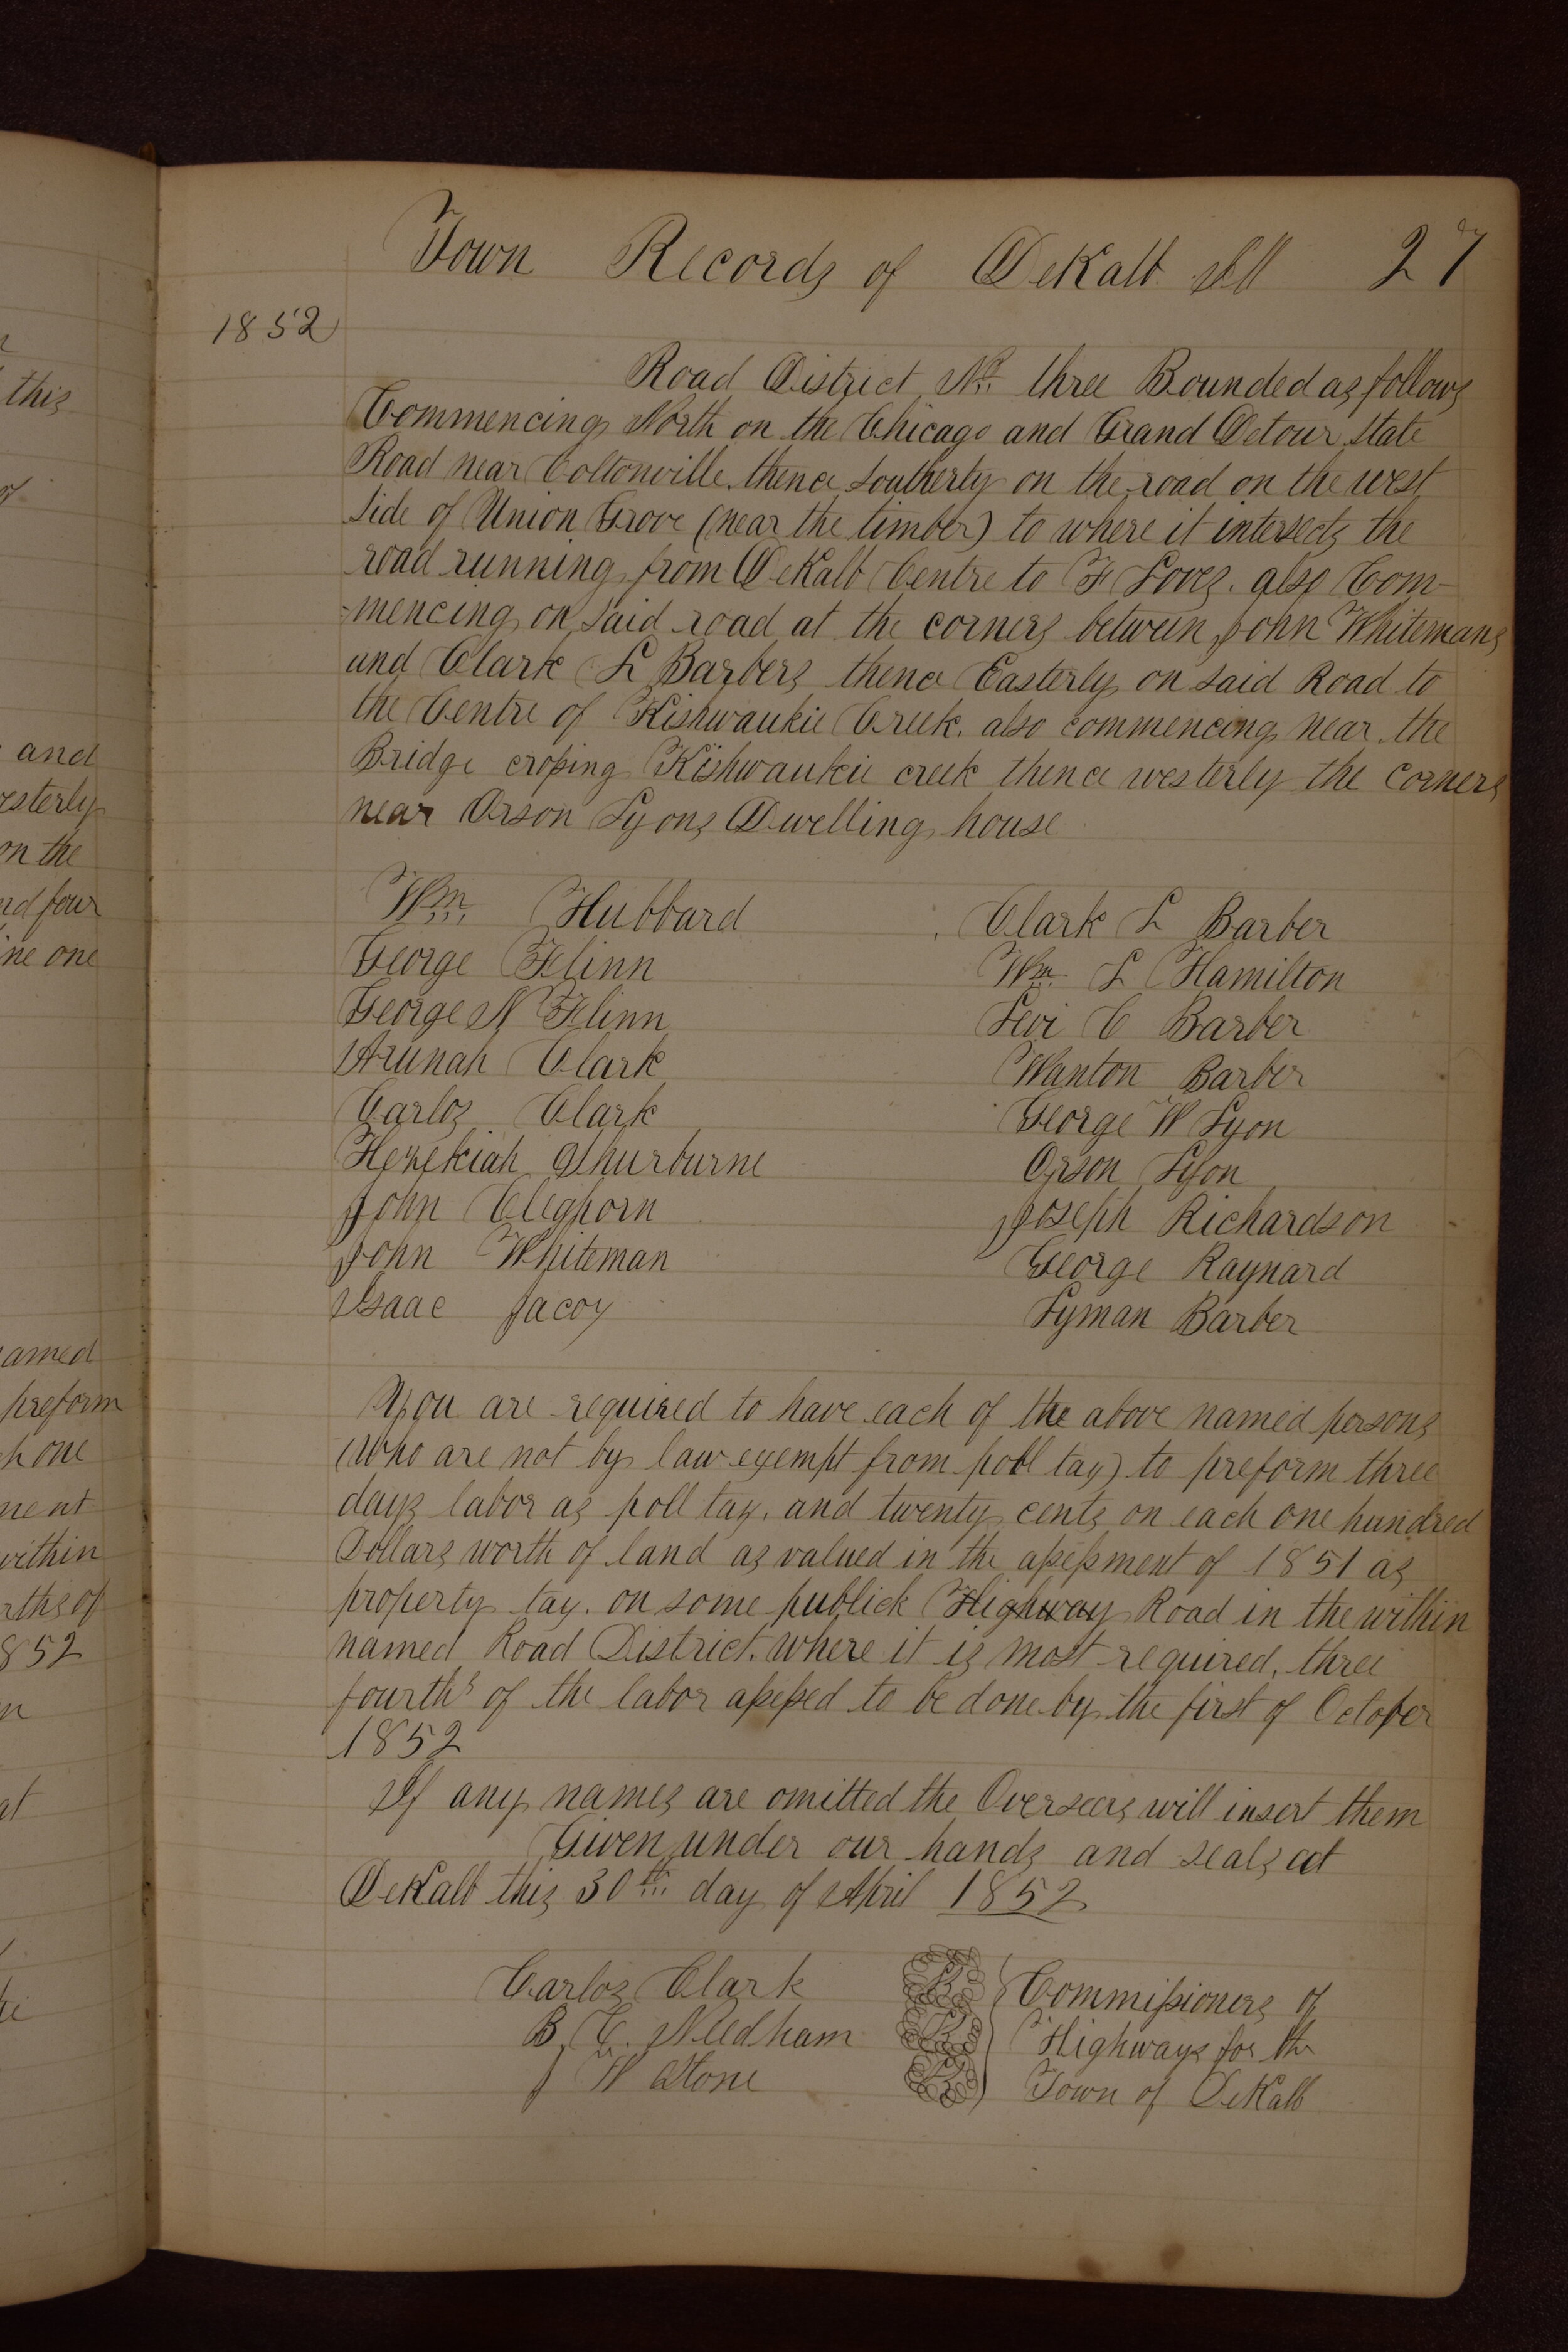 Town Records of DeKalb Ill 27
1852
Road District No. three Bounded as follows
Commencing North on the Chicago and Grand Detour State
Road near Coltonville. thence Southerly on the road on the west
side of Union Grove (near the timber) to where it intersects the
road running from DeKalb Centre to F Loves. also Com-
-mencing on said road at the corners between John Whitemans
and Clark L Barbers thence Easterly on said Road to
the Centre of Kishwaukie Creek. also commencing near the
Bridge crossing Kishwaukie creek thence westerly the corners
near Orson Lyons Dwelling house
Wm. Hubbard
George Flinn
George N Flinn
Arunah Clark
Carlos Clark
Hezekiah Shurburne
John Cleghorn
John Whiteman
Isaac Jacoy
Clark L Barber
Wm. L Hamilton
Levi C Barber
Wanton Barber
George W Lyon
Orson Lyon
Joseph Richardson
George Raynard
Lyman Barber
You are required to have each of the above named persons
(who are not by law exempt from poll tax) to preform three
days labor as poll tax. and twenty cents on each one hundred
Dollars worth of land as valued in the assessment of 1851 as
property tax. on some publick Highway Road in the within
named Road District. where it is most required. three
fourths of the labor assessed to be done by the first of October
1852
If any names are omitted the Overseers will insert them
Given under our hands and seals at
DeKalb this 30th day of April 1852
Carlos Clark
B. C. Needham
J W Stone
Commissioners of
Highways for the
Town of DeKalb
this
and
westerly
on the
and four
line one
named
preform
one
within
1852